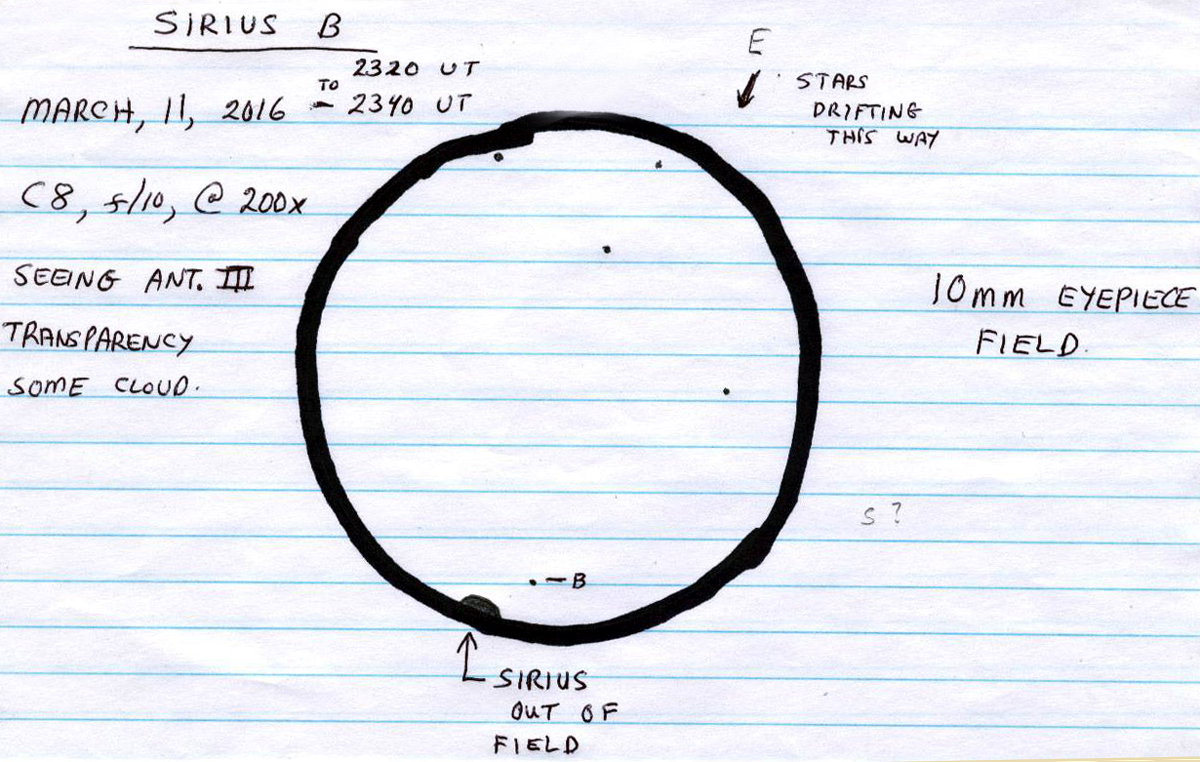 SIRIUS B
2320 UT
TO
MARCH, 11, 2016 - 2340 UT
C8, f/10, @ 200x
SEEING ANT. III
TRANSPARENCY
SOME CLOUD.
E
STARS
DRIFTING
THIS WAY
10mm EYEPIECE
FIELD.
S ?
- B
SIRIUS
OUT OF
FIELD